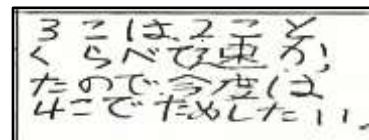 3こは、2こと
くらべて速か、
たので今度は
4こでためしたい。